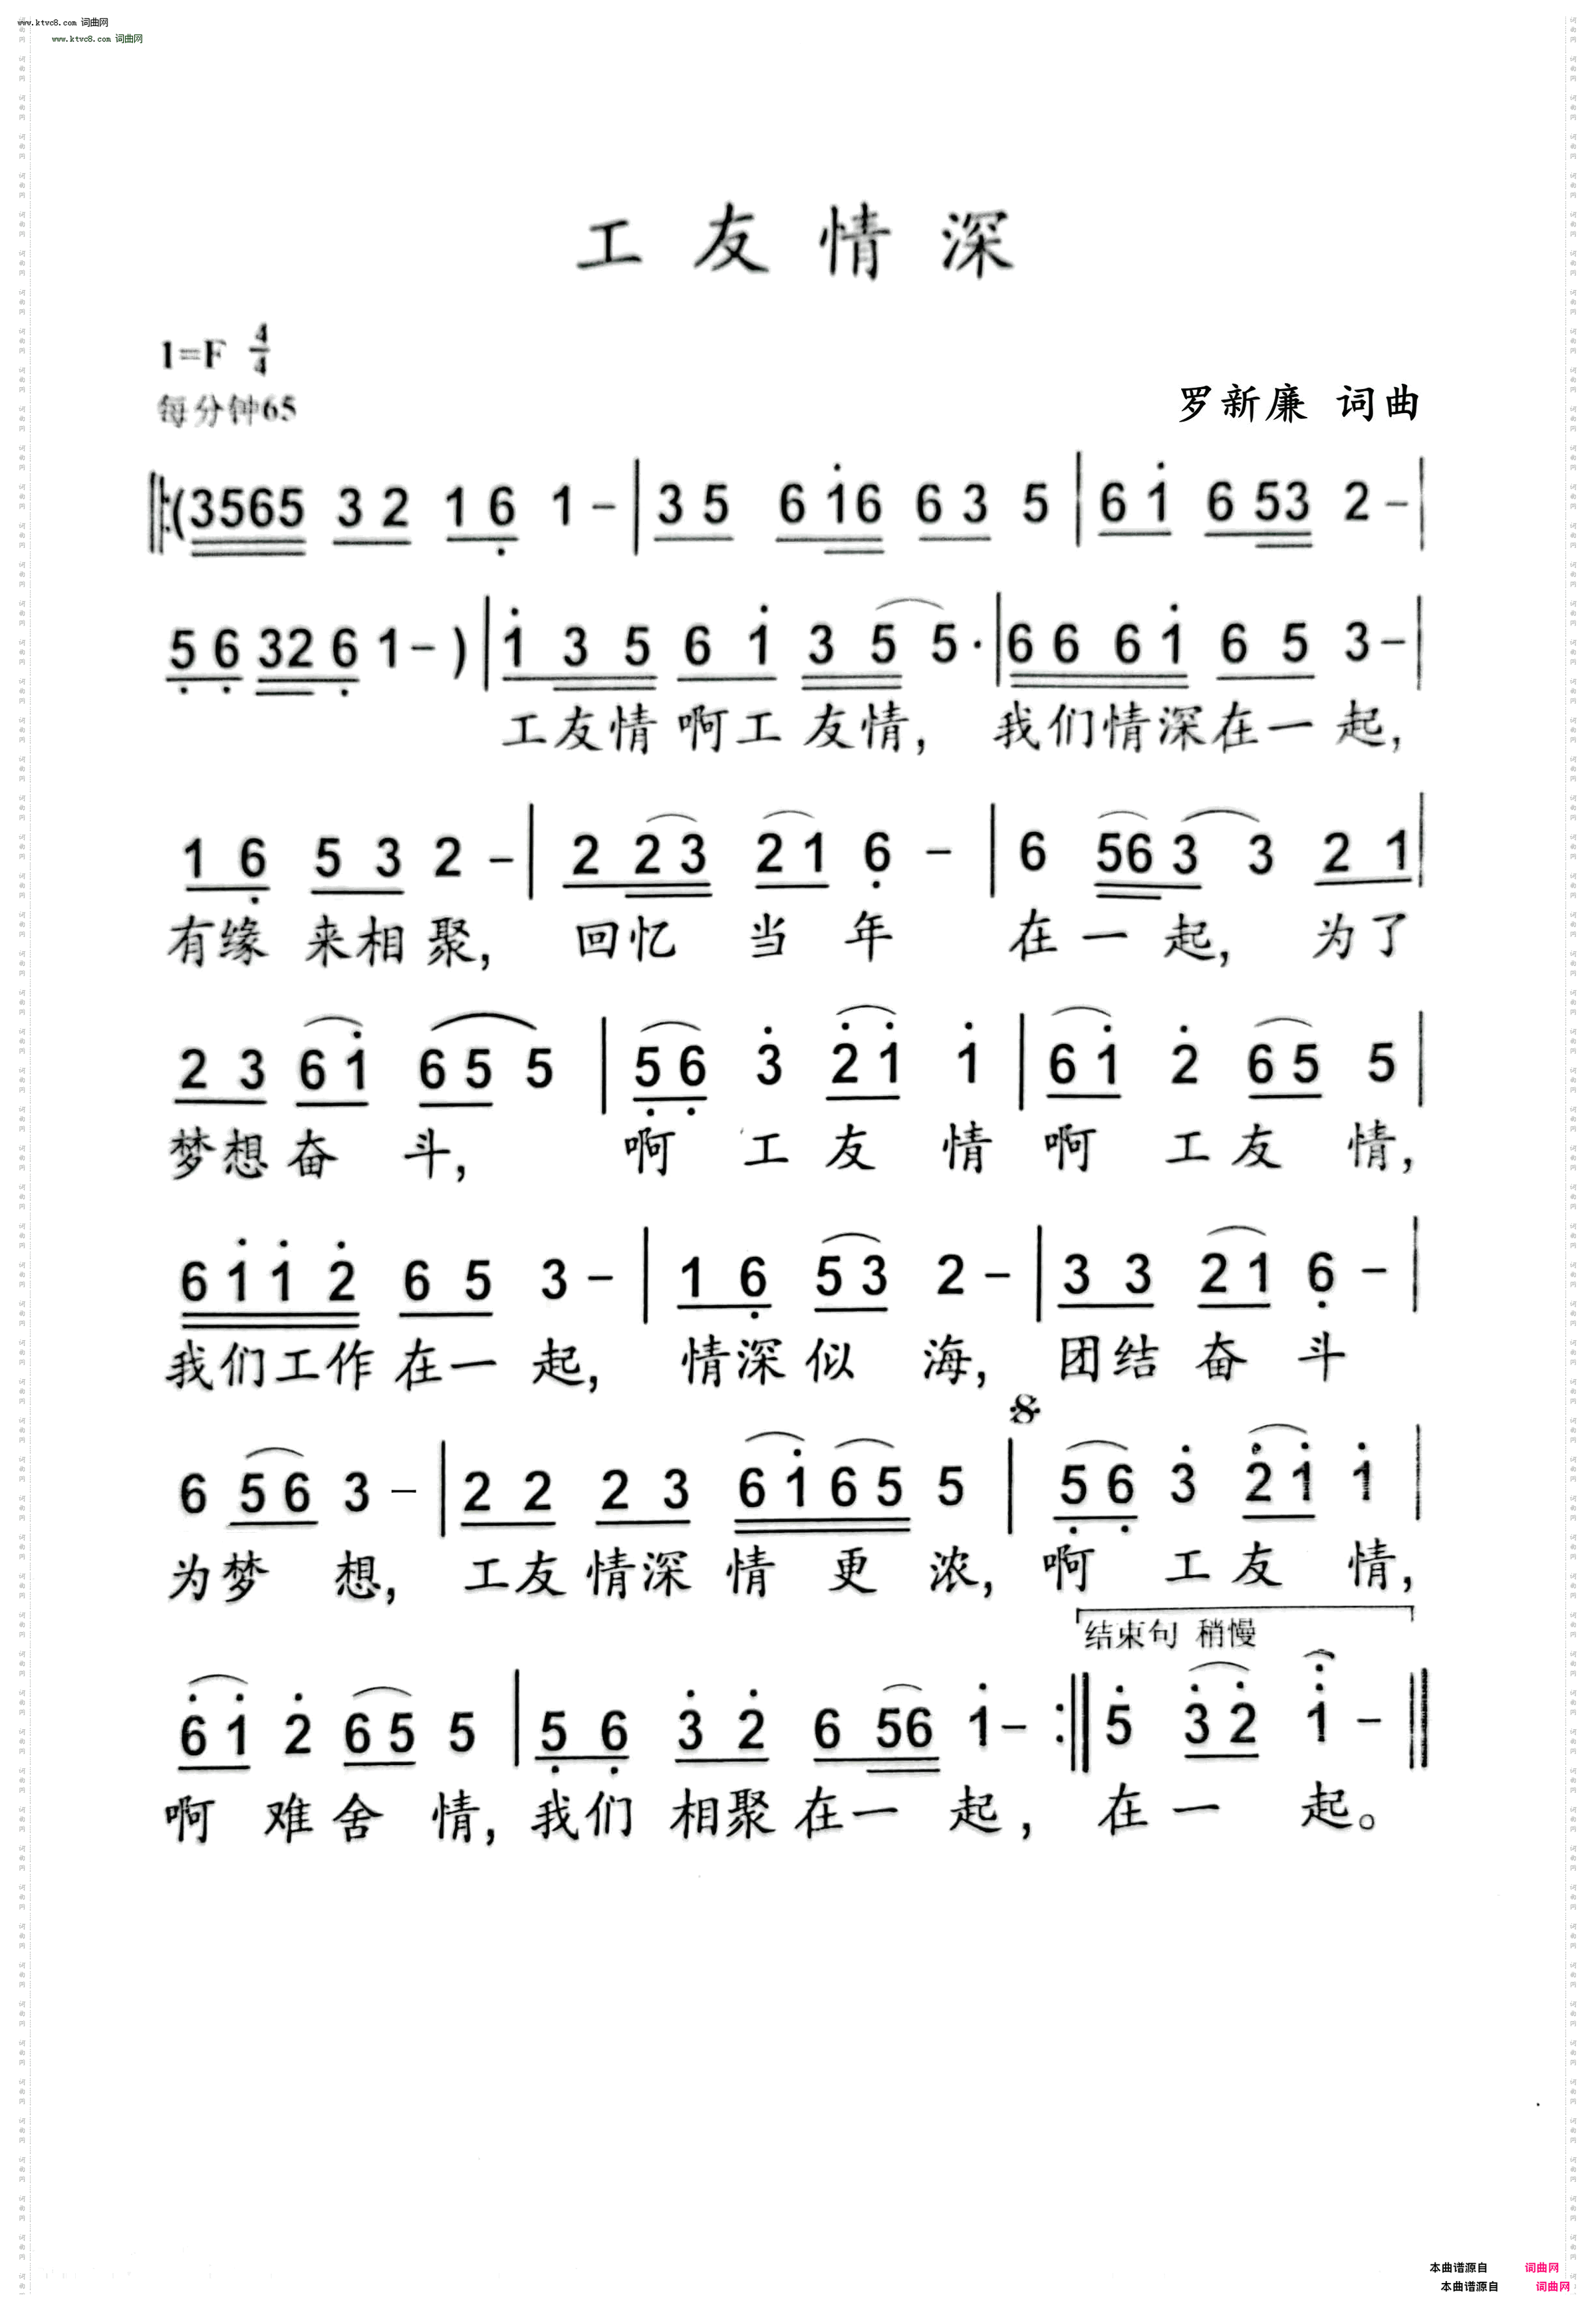 www.ktvc8.com 词曲网
www.ktvc8.com 词曲网
工友情深
1=F 4/4
每分钟65
罗新廉 词曲
‖:(3565 3 2 1 6̣ 1 - | 3 5 6 1̇6 6 3 5 | 6 1̇ 6 53 2 - |
5̣ 6̣ 32 6̣ 1 - ) | 1̇ 3 5 6 1̇ 3 5 5 · | 6 6 6 1̇ 6 5 3 - |
工友情 啊工 友情， 我们情深在一 起，
1 6̣ 5 3 2 - | 2 2 3 2 1 6̣ - | 6 56 3 3 2 1 |
有缘 来相 聚， 回忆 当 年 在 一 起， 为了
2 3 6 1̇ 6 5 5 | 5̣ 6̣ 3̇ 2̇ 1̇ 1̇ | 6 1̇ 2̇ 6 5 5 |
梦想 奋 斗， 啊 工 友 情 啊 工 友 情，
6 1̇ 1̇ 2̇ 6 5 3 - | 1 6̣ 5 3 2 - | 3 3 2 1 6̣ - |
我们工作 在一 起， 情深 似 海， 团结 奋 斗
6 5 6 3 - | 2 2 2 3 6 1̇ 6 5 5 | 5̣ 6̣ 3̇ 2̇ 1̇ 1̇ |
为梦 想， 工友 情深 情 更 浓， 啊 工 友 情，
结束句 稍慢
6̇ 1̇ 2̇ 6 5 5 | 5̣ 6̣ 3̇ 2̇ 6 56 1̇ - :‖ 5̇ 3̇ 2̇ 1̇ - ‖
啊 难 舍 情， 我们 相聚 在一 起， 在 一 起。
本曲谱源自 词曲网
本曲谱源自 词曲网